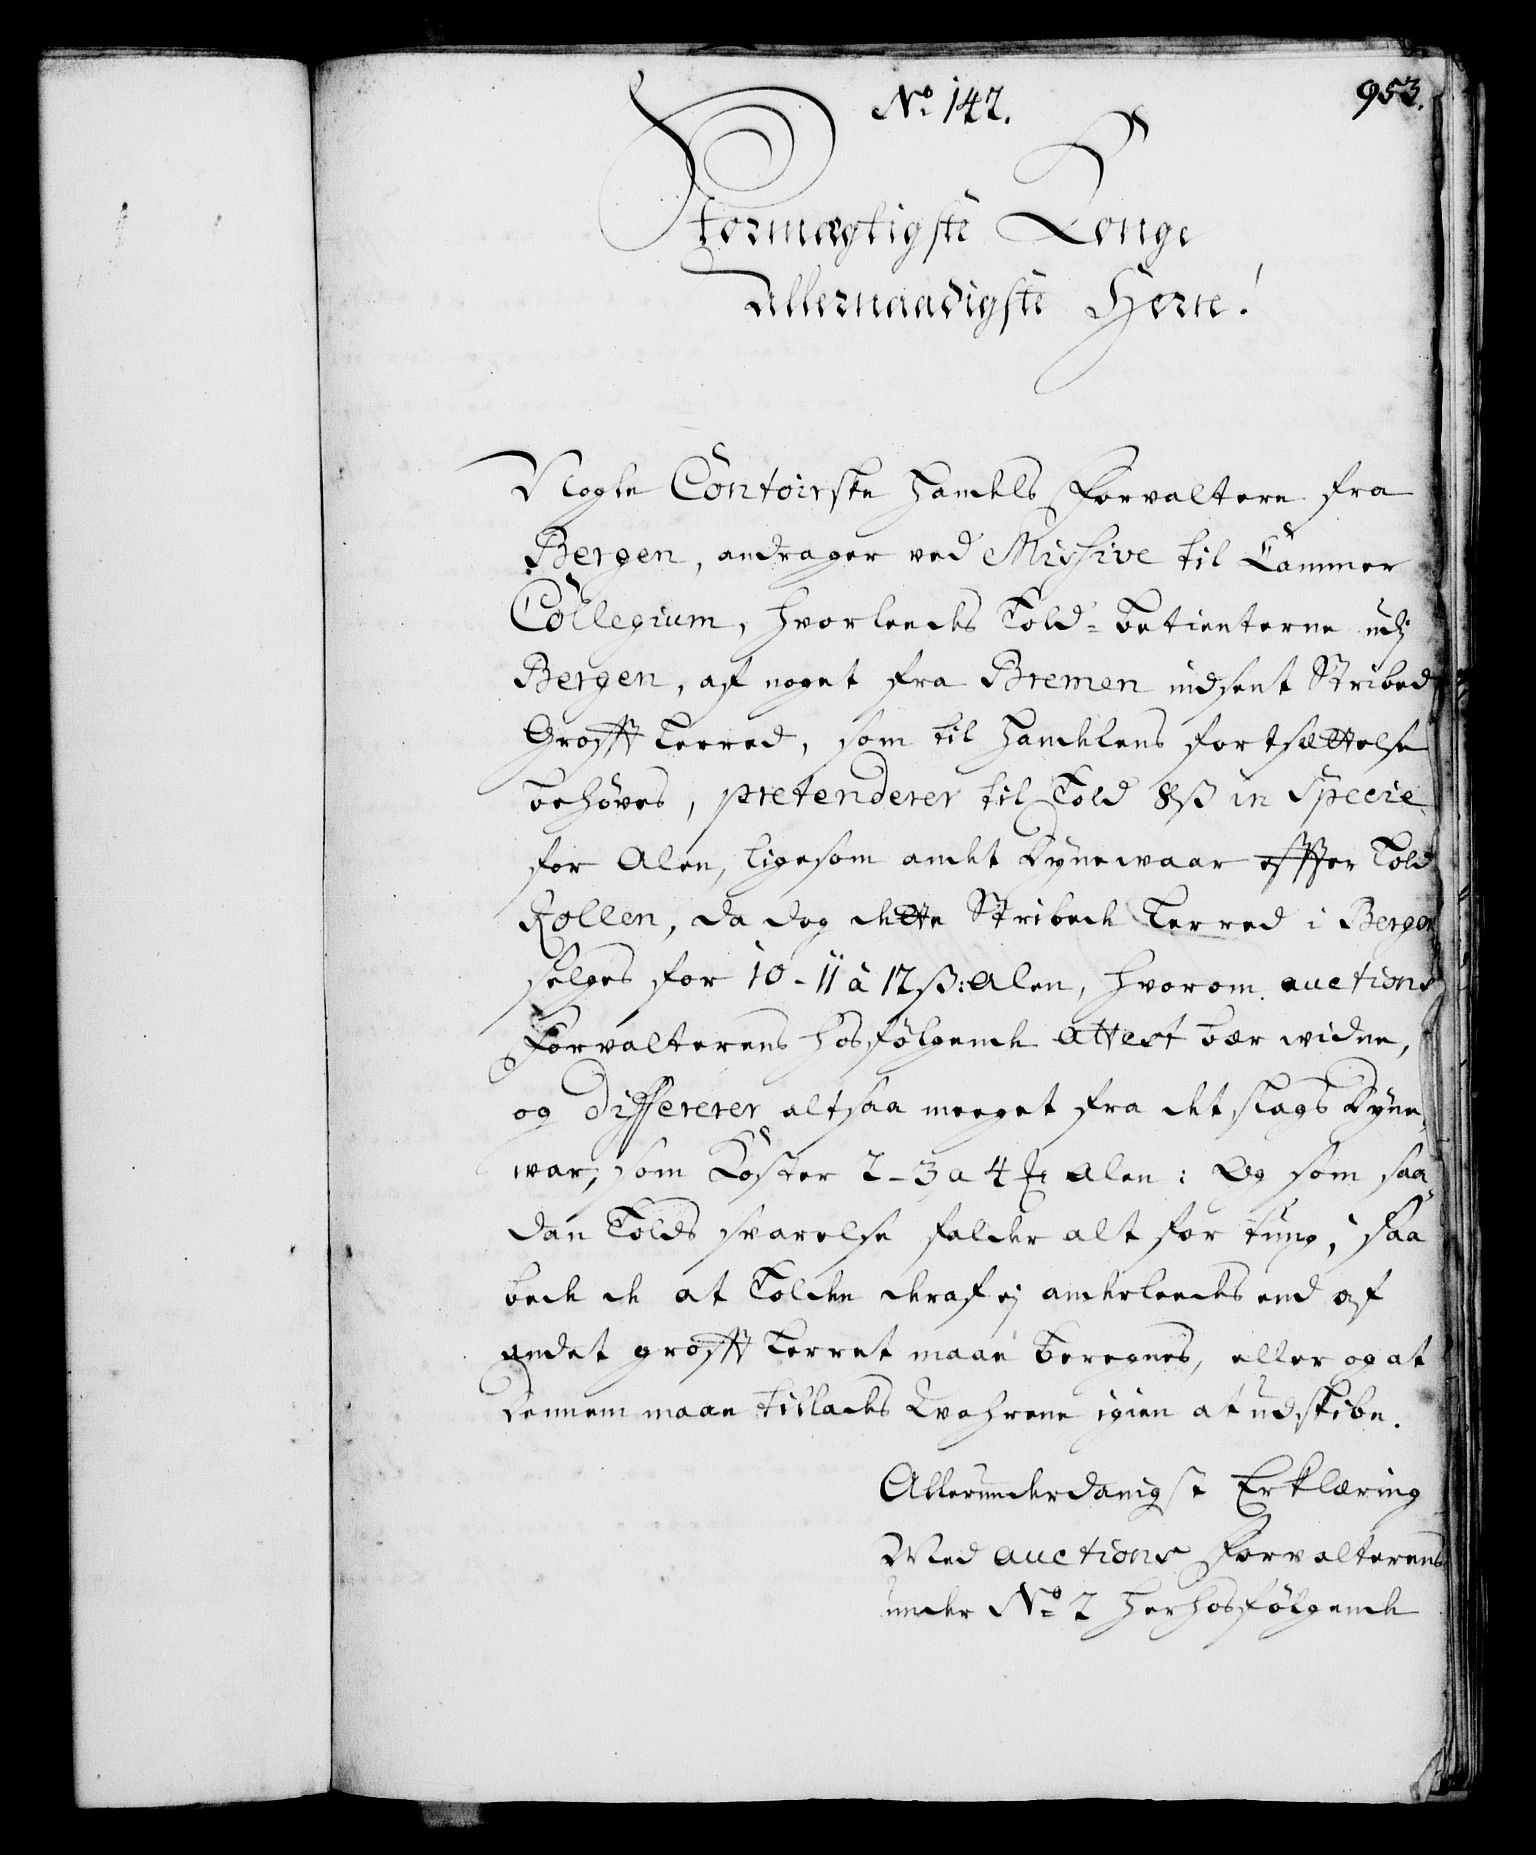 No 147.
953.
Stormægtigste Konge
Allernaadigste Herre!
Nogle Contoirske Handels Forvaltere fra
Bergen, andrager ved Missive til Cammer
Collegium, hvorleedes Told-betienterne udj
Bergen, af noget fra Bremen indsent Stribed
Groft Lerred, som til Handelens fortsættelse
behøves, pretenderer til Told 8 ß in Specie
for Alen, ligesom andet Dynewaar efter Told
Rollen, da dog dette Stribede Lerred i Bergen
selges for 10 - 11 à 12 ß: Alen, hvorom auctions
Forvalterens hosfølgende Attest bær widne,
og Differerer altsaa meeget fra det slags Dyne
war, som Koster 2 - 3 a 4 Alen: Og som saa
dan Tolds svarelse falder alt for tung, saa
bede de at Tolden deraf ej anderleedes end af
andet groft Lerret maae beregnes, eller og at
dennem maae tillades Wahrene igien at udskibe.
Allerunderdanigst Erklæring
Med auctions Forvalterens
under No 2 herhosfølgende